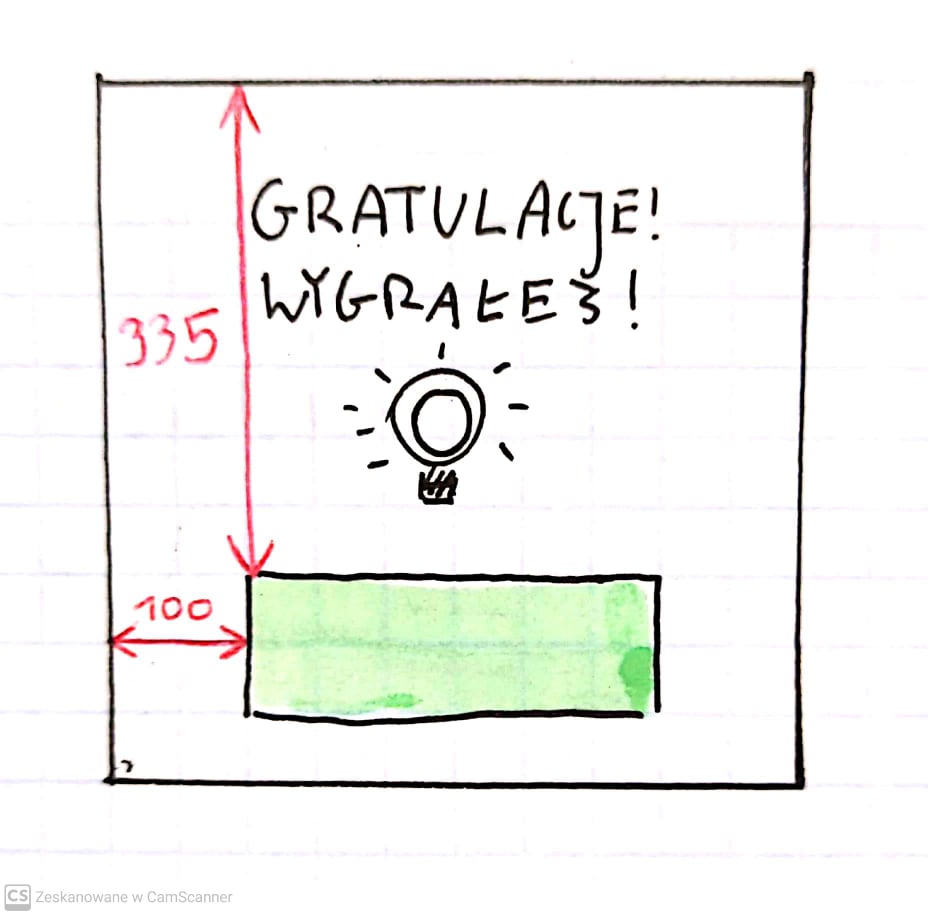 GRATULACJE!
WYGRAŁEŚ!
335
100
CS Zeskanowane w CamScanner